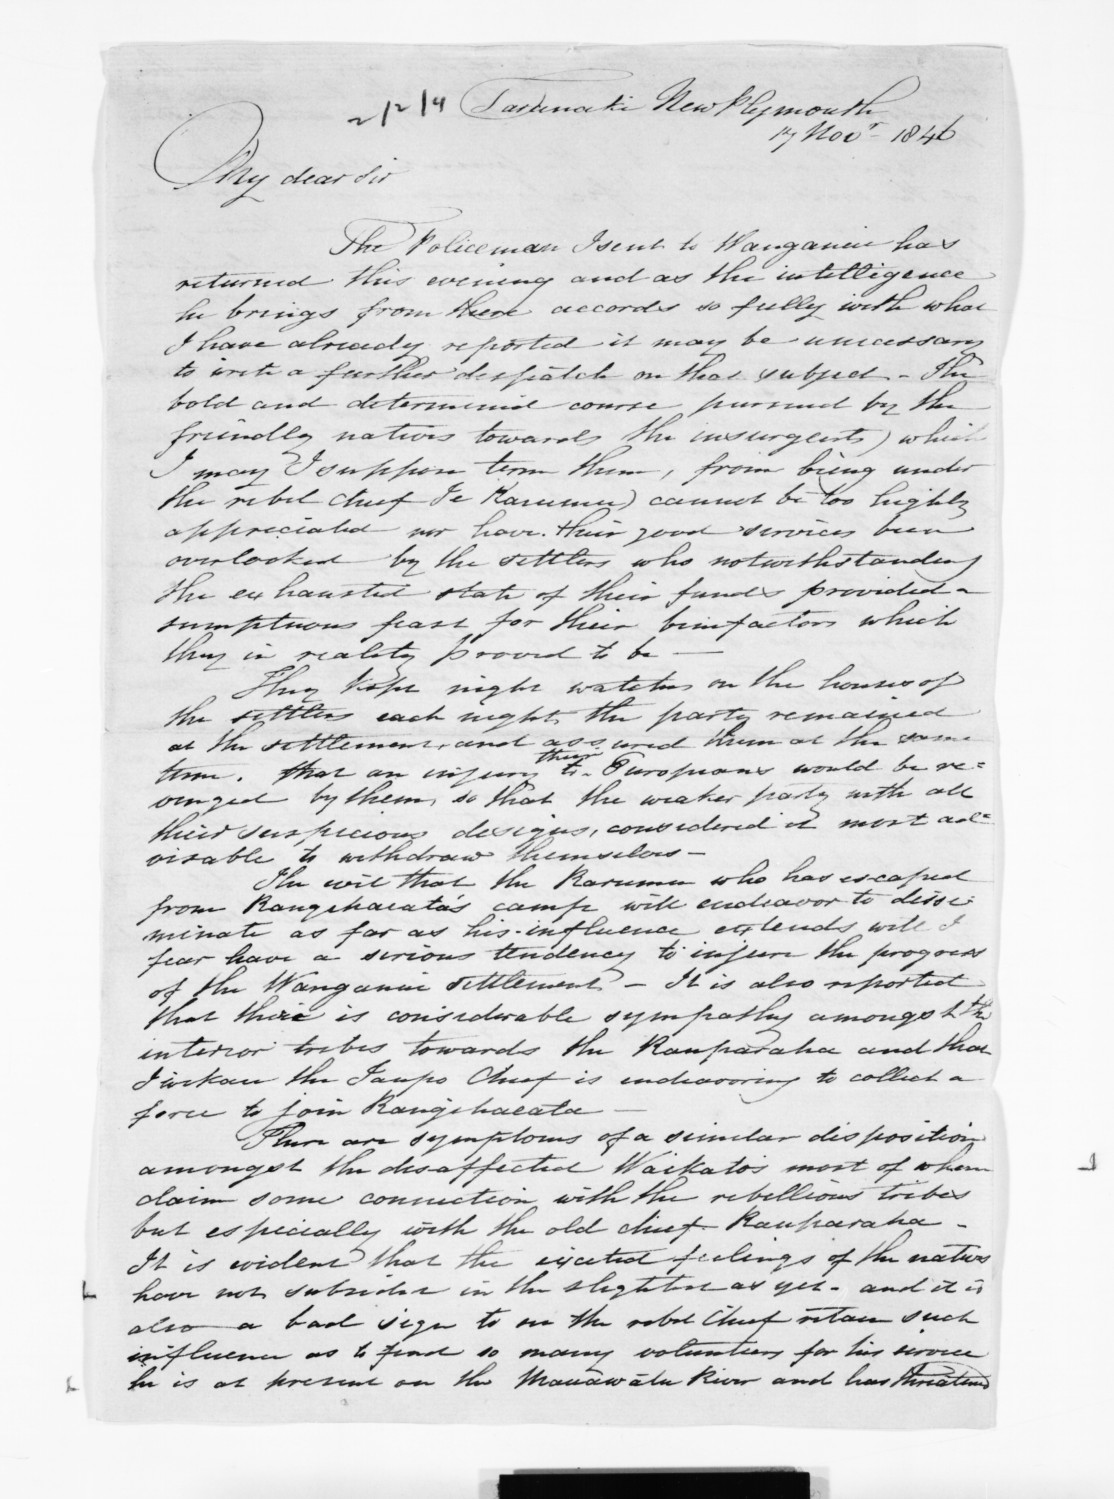 Taranaki New Plymouth
17 Novr 1846
My dear Sir
The Policeman I sent to Wanganui has
returned this evening and as the intelligence
he brings from there accords so fully with what
I have already reported it may be unnecessary
to write a further despatch on that subject - The
bold and determined course pursued by the
friendly natives towards the insurgents) which
I may I suppose term them, from being under
the rebel chief Te Karumu) cannot be too highly
appreciated nor have their good services been
overlooked by the settlers who notwithstanding
the exhausted state of their funds provided a
sumptuous feast for their benefactors which
they in reality proved to be —
They kept night watches on the houses of
the settlers each night, the party remained
at the settlement, and assured them at the same
time, that an injury to these Europeans would be re=
venged by them, so that the weaker party with all
their suspicious designs, considered it most ad=
visable to withdraw themselves -
The evil that the Karumu who has escaped
from Rangihaeata's camp will endeavor to disse-
minate as far as his influence extends will I
fear have a serious tendency to injure the progress
of the Wanganui settlement - It is also reported
that there is considerable sympathy amongst the
interior tribes towards the Rauparaha and that
Iwikau the Taupo Chief is endeavoring to collect a
force to join Rangihaeata —
There are symptoms of a similar disposition
amongst the disaffected Waikato's most of whom
claim some connection with the rebellious tribes
but especially with the old chief Rauparaha -
It is evident that the excited feelings of the natives
have not subsided in the slightest as yet - and it is
also a bad sign to see the rebel Chief retain such
influence as to find so many volunteers for his service
he is at present on the Manawatu River and has threatened